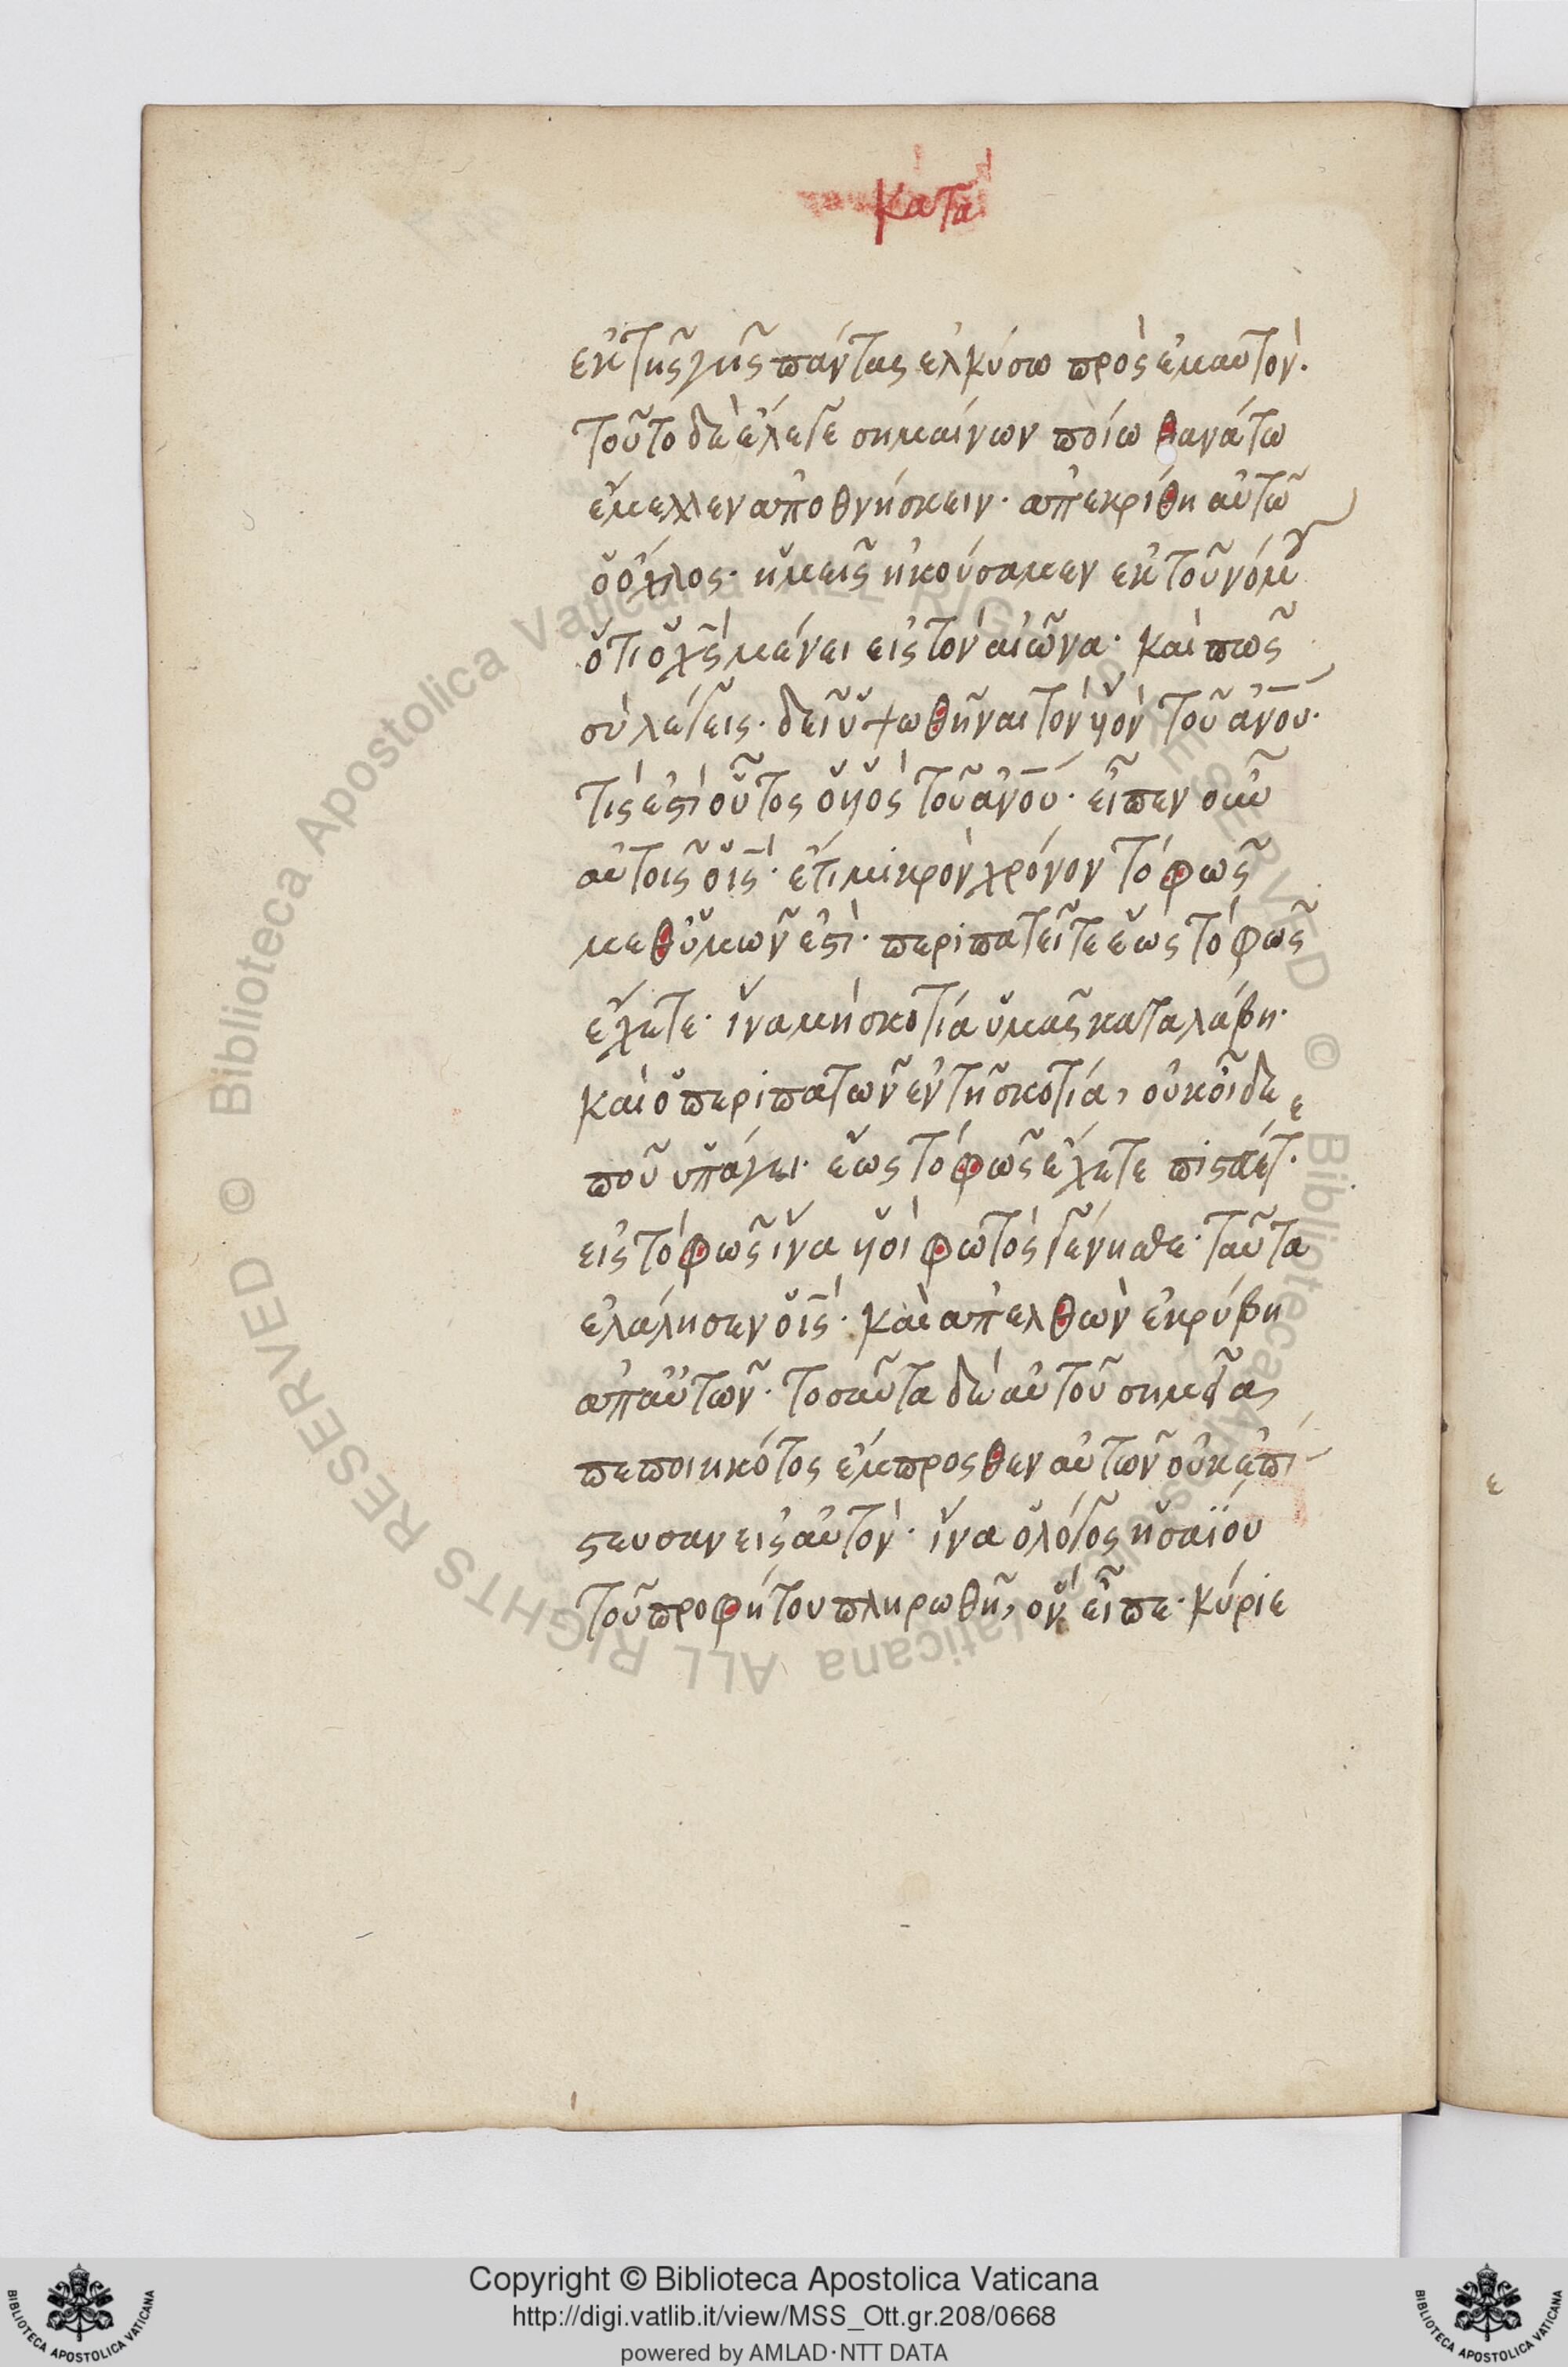 κατὰ
ἐκ τῆς γῆς πάντας ἑλκύσω πρὸς ἐμαυτόν.
τοῦτο δὲ ἔλεγε σημαίνων ποίω θανάτω
ἔμελλεν ἀποθνήσκειν· ἀπεκρίθη αὐτῶ
ὁ ὄχλος· ἡμεῖς ἠκούσαμεν ἐκ τοῦ νόμου
ὅτι ὁ χς μένει εἰς τὸν αἰῶνα· καὶ πῶς
σὺ λέγεις· δεῖ ὑψωθῆναι τὸν υἱὸν τοῦ ανου·
τίς ἐστὶ οὗτος ὁ υἱὸς τοῦ ανου· εἶπεν οὖν
αὐτοῖς ὁ ις· ἔτι μικρὸν χρόνον τὸ φῶς
μεθ ὑμῶν ἐστὶ· περιπατεῖτε ἕως τὸ φῶς
ἔχετε· ἵνα μὴ σκοτία ὑμᾶς καταλάβη·
καὶ ὁ περιπατῶν ἐν τῆ σκοτία, οὐκ οἶδε
ποῦ ὑπάγει· ἕως τὸ φῶς ἔχετε πιστεύετ·
εἰς τὸ φῶς ἵνα υἱοὶ φωτὸς γένησθε· ταῦτα
ἐλάλησεν ὁ ις· καὶ ἀπελθὼν ἐκρύβη
ἀπ αὐτῶν· τοσαῦτα δὲ αὐτοῦ σημεῖα
πεποιηκότος ἔμπροσθεν αὐτῶν οὐκ ἐπί
στευσαν εἰς αὐτὸν· ἵνα ὁ λόγος ἡσαΐου
τοῦ προφήτου πληρωθῆ, ὃν εἶπε· κύριε
Copyright © Biblioteca Apostolica Vaticana
http://digi.vatlib.it/view/MSS_Ott.gr.208/0668
powered by AMLAD·NTT DATA